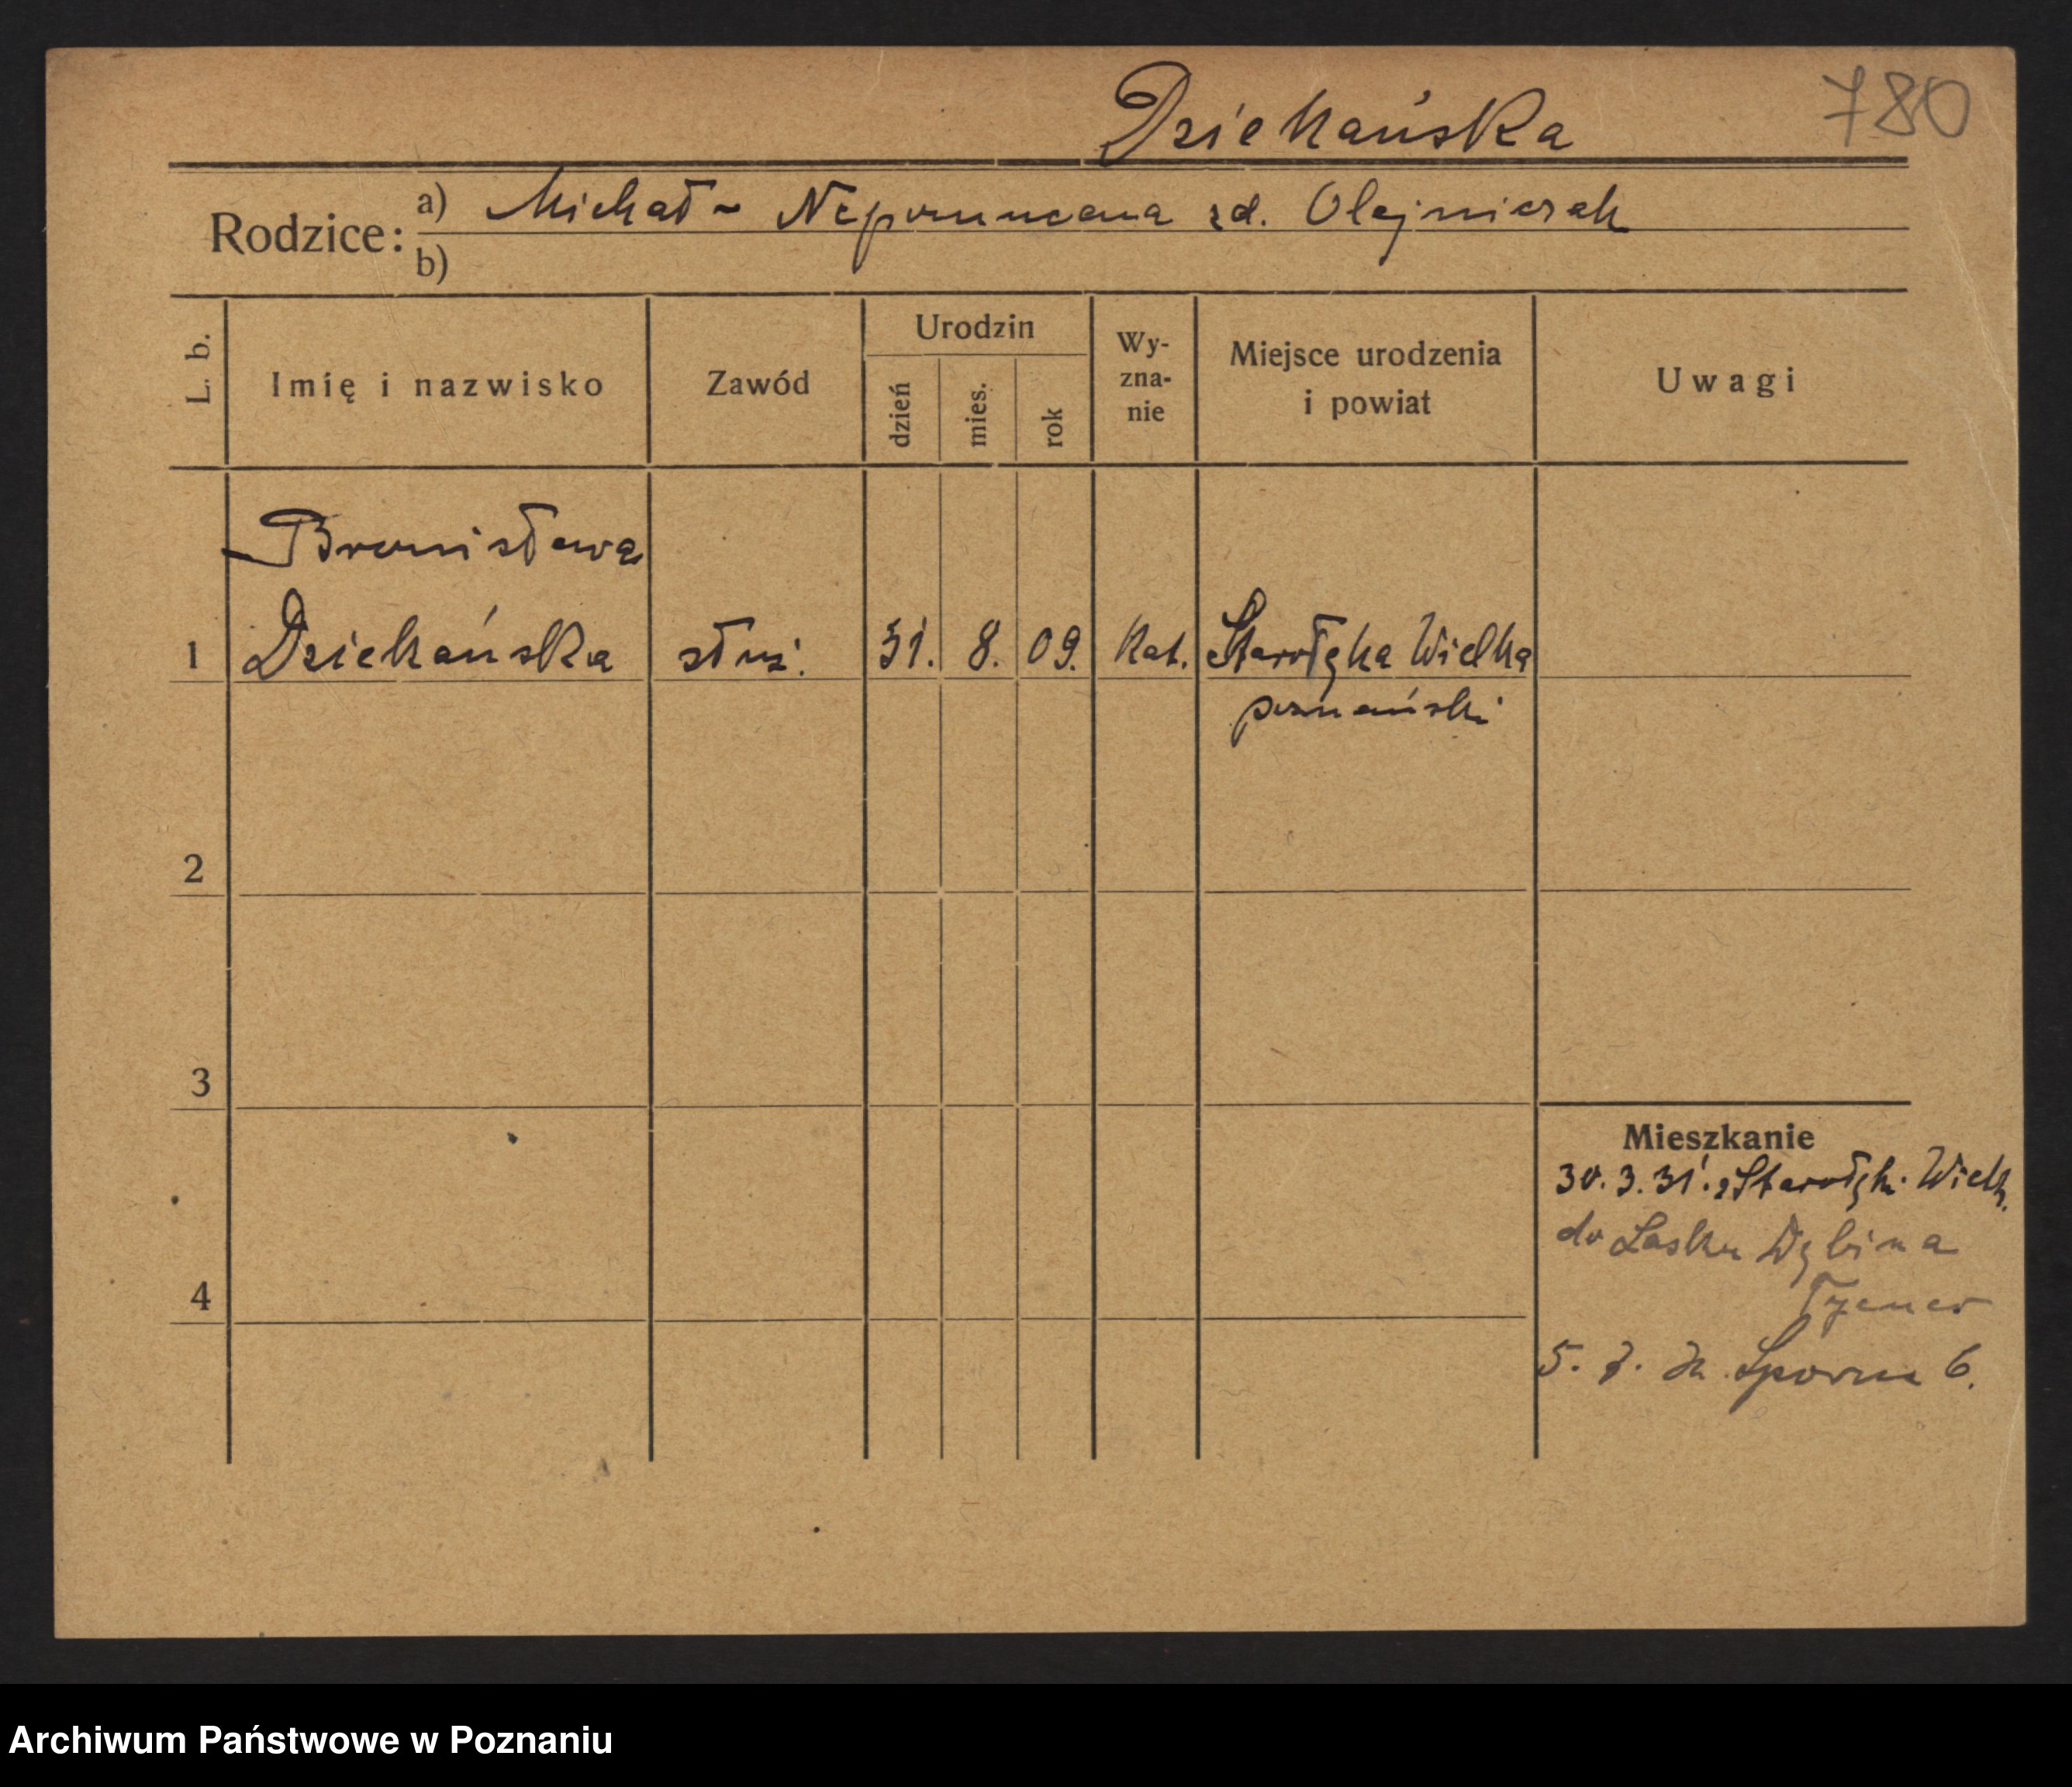 Dziekańska
780
Rodzice:
a) Michał - Nepomucena zd. Olejniczak
b)
L. b.
Imię i nazwisko
Zawód
Urodzin
dzień
mies.
rok
Wy-
zna-
nie
Miejsce urodzenia
i powiat
Uwagi
Bronisława
1 Dziekańska służ. 31. 8. 09. Kat. Starołęka Wielka
poznański
2
3
4
Mieszkanie
30.3.31. z Starołęki Wielk.
do Lasku Dębina
5. 7. Sporna 6.
Archiwum Państwowe w Poznaniu